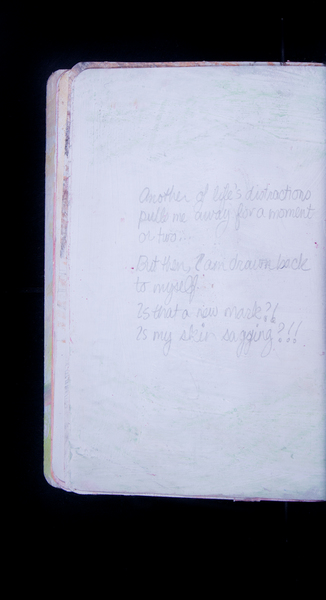 Another of life's distractions
pulls me away for a moment
or two...
But then, I am drawn back
to myself...
Is that a new mark?!
Is my skin sagging?!!